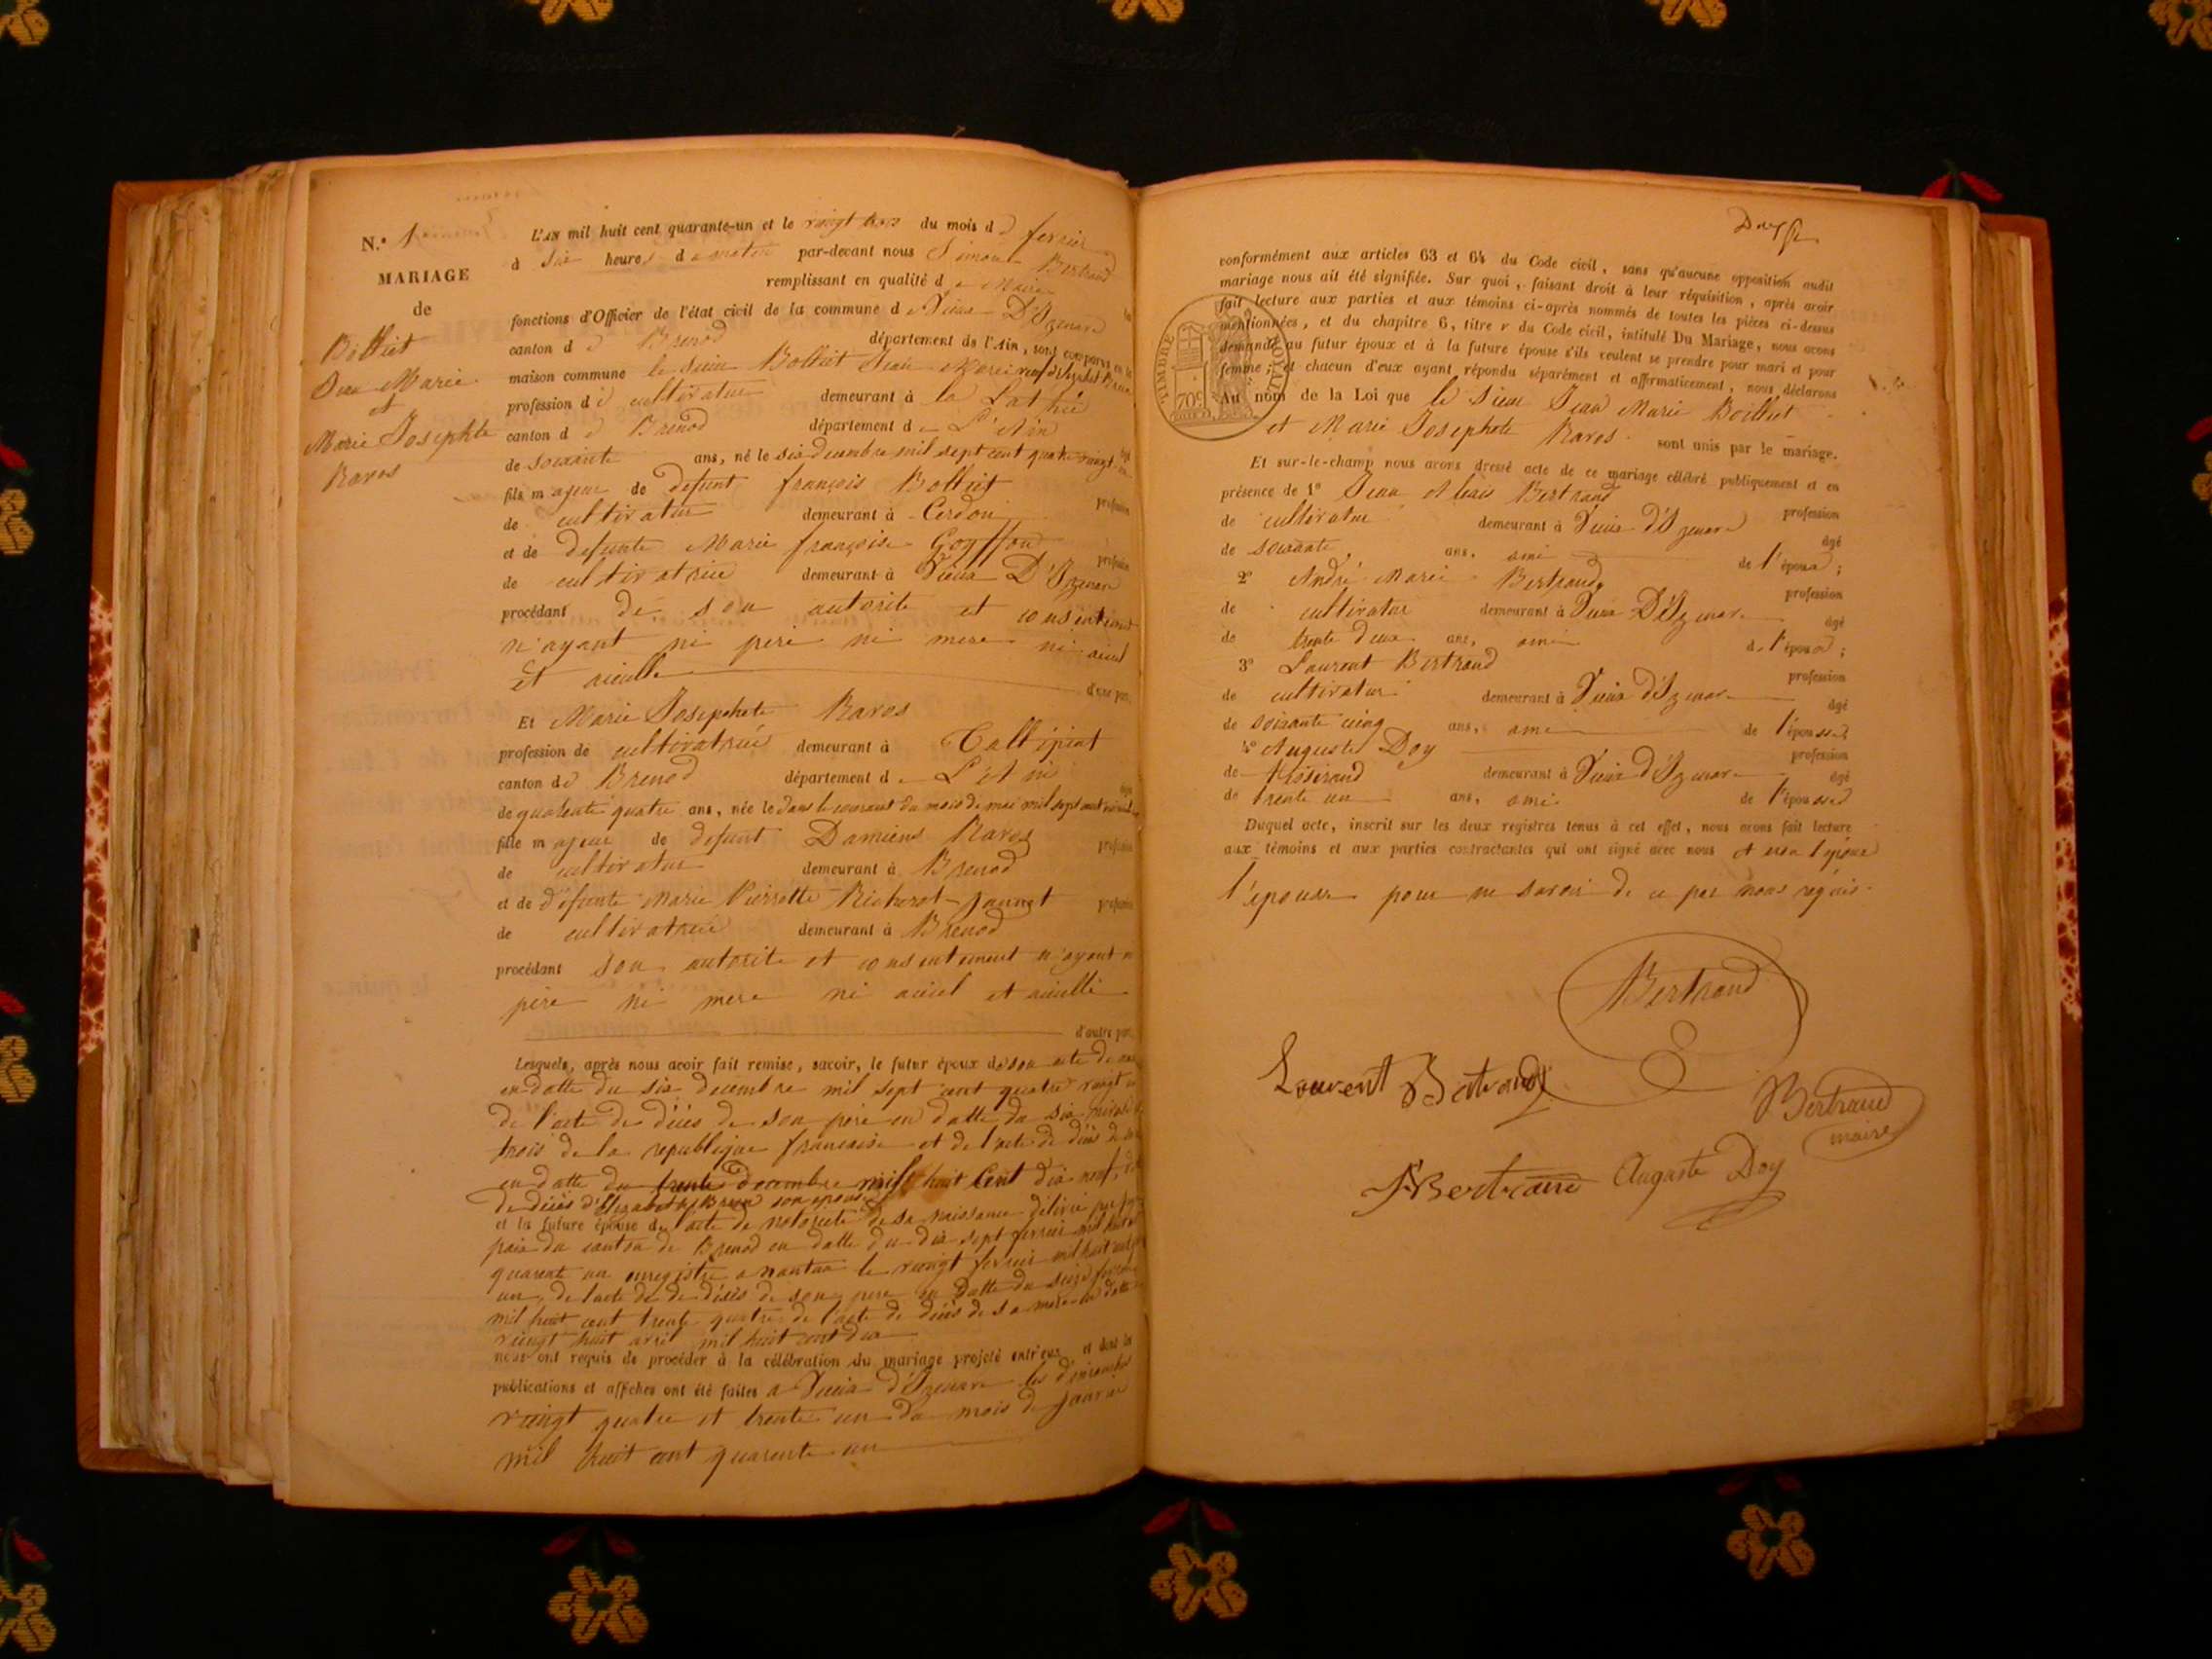 N.º 1
MARIAGE
de
Bolliet
Jean Marie
et
Marie Josephte
Ravos
L'AN mil huit cent quarante-un et le vingt trois du mois d e fevrier
à six heures du matin par-devant nous Simon Bertrand
remplissant en qualité de Maire
fonctions d'Officier de l'état civil de la commune de Vieux D'Izenave
canton d e Brenod département de l'Ain, sont comparus en la
maison commune le sieur Bolliet Jean Marie veuf
profession de cultivateur demeurant à la
canton d e Brenod département de L'Ain
de soixante ans, né le six decembre mil sept cent quatre vingt
fils majeur de defunt françois Bolliet
de cultivateur demeurant à Cerdon profession
et de defunte Marie françoise Goyffon
de cultivatrice demeurant à Vieux D'Izenave profession
procédant de son autorité et consentement
n'ayant ni pere ni mere ni aieul
et aieulle d'une part
Et Marie Josephete Ravos
profession de cultivatrice demeurant à
canton de Brenod département de L'Ain
de quarente quatre ans, née le dans le courant du mois de mai mil sept cent
fille majeur de defunt Damiens Ravos
de cultivateur demeurant à Brenod
et de défunte Marie Pierrette Richerot-Jannet
de cultivatrice demeurant à Brenod
procédant son autorite et consentement n'ayant ni
père ni mere ni aieul et aieulle
d'autre part
Lesquels, après nous avoir fait remise, savoir, le futur époux de son acte de
en datte du six decembre mil sept cent quatre vingt
de l'acte de décès de son père en datte du six
trois de la republique francaise et de l'acte de décès de
en datte du trente decembre mil huit Cent dix neuf,
de décès d' son epouse
et la future épouse de l'acte de notoriété de sa naissance délivré par
paix du canton de Brenod en datte du dix sept fevrier mil huit
quarente un enregistré a nantua le vingt fevrier mil huit cent
un, de l'acte de de décès de son pere en datte du seize
mil huit cent trente quatre de l'acte de décès de sa mere en datte
vingt huit avril mil huit cent dix
nous ont requis de procéder à la célébration du mariage projeté entr'eux et dont les
publications et affiches ont été faites a Vieux d'Izenave les dimanches
vingt quatre et trente un du mois de janvier
mil huit cent quarente un
conformément aux articles 63 et 64 du Code civil, sans qu'aucune opposition audit
mariage nous ait été signifiée. Sur quoi, faisant droit à leur réquisition, après avoir
fait lecture aux parties et aux témoins ci-après nommés de toutes les pièces ci-dessus
mentionnées, et du chapitre 6, titre v du Code civil, intitulé Du Mariage, nous avons
demandé au futur époux et à la future épouse s'ils veulent se prendre pour mari et pour
femme; et chacun d'eux ayant répondu séparément et affirmativement, nous déclarons
Au nom de la Loi que le sieur Jean Marie Bolliet
et Marie Josephete Ravos sont unis par le mariage.
TIMBRE ROYAL
70 c
Et sur-le-champ nous avons dressé acte de ce mariage célébré publiquement et en
présence de 1º Jean Bertrand profession
de cultivateur demeurant à Vieux d'Izenave âgé
de soixante ans, ami de l'époux;
2º André Marie Bertrand profession
de cultivateur demeurant à Vieux D'Izenave âgé
de trente deux ans, ami de l'époux;
3º Laurent Bertrand profession
de cultivateur demeurant à Vieux d'Izenave âgé
de soixante cinq ans, ami de l'épouse;
4º Auguste Doy profession
de demeurant à Vieux d'Izenave âgé
de trente un ans, ami de l'épouse
Duquel acte, inscrit sur les deux registres tenus à cet effet, nous avons fait lecture
aux témoins et aux parties contractantes qui ont signé avec nous et non l'époux
l'epouse pour ne savoir de ce par nous requis.
Bertrand
Laurent Bertrand
Bertrand
maire
Bertrand
Auguste Doy